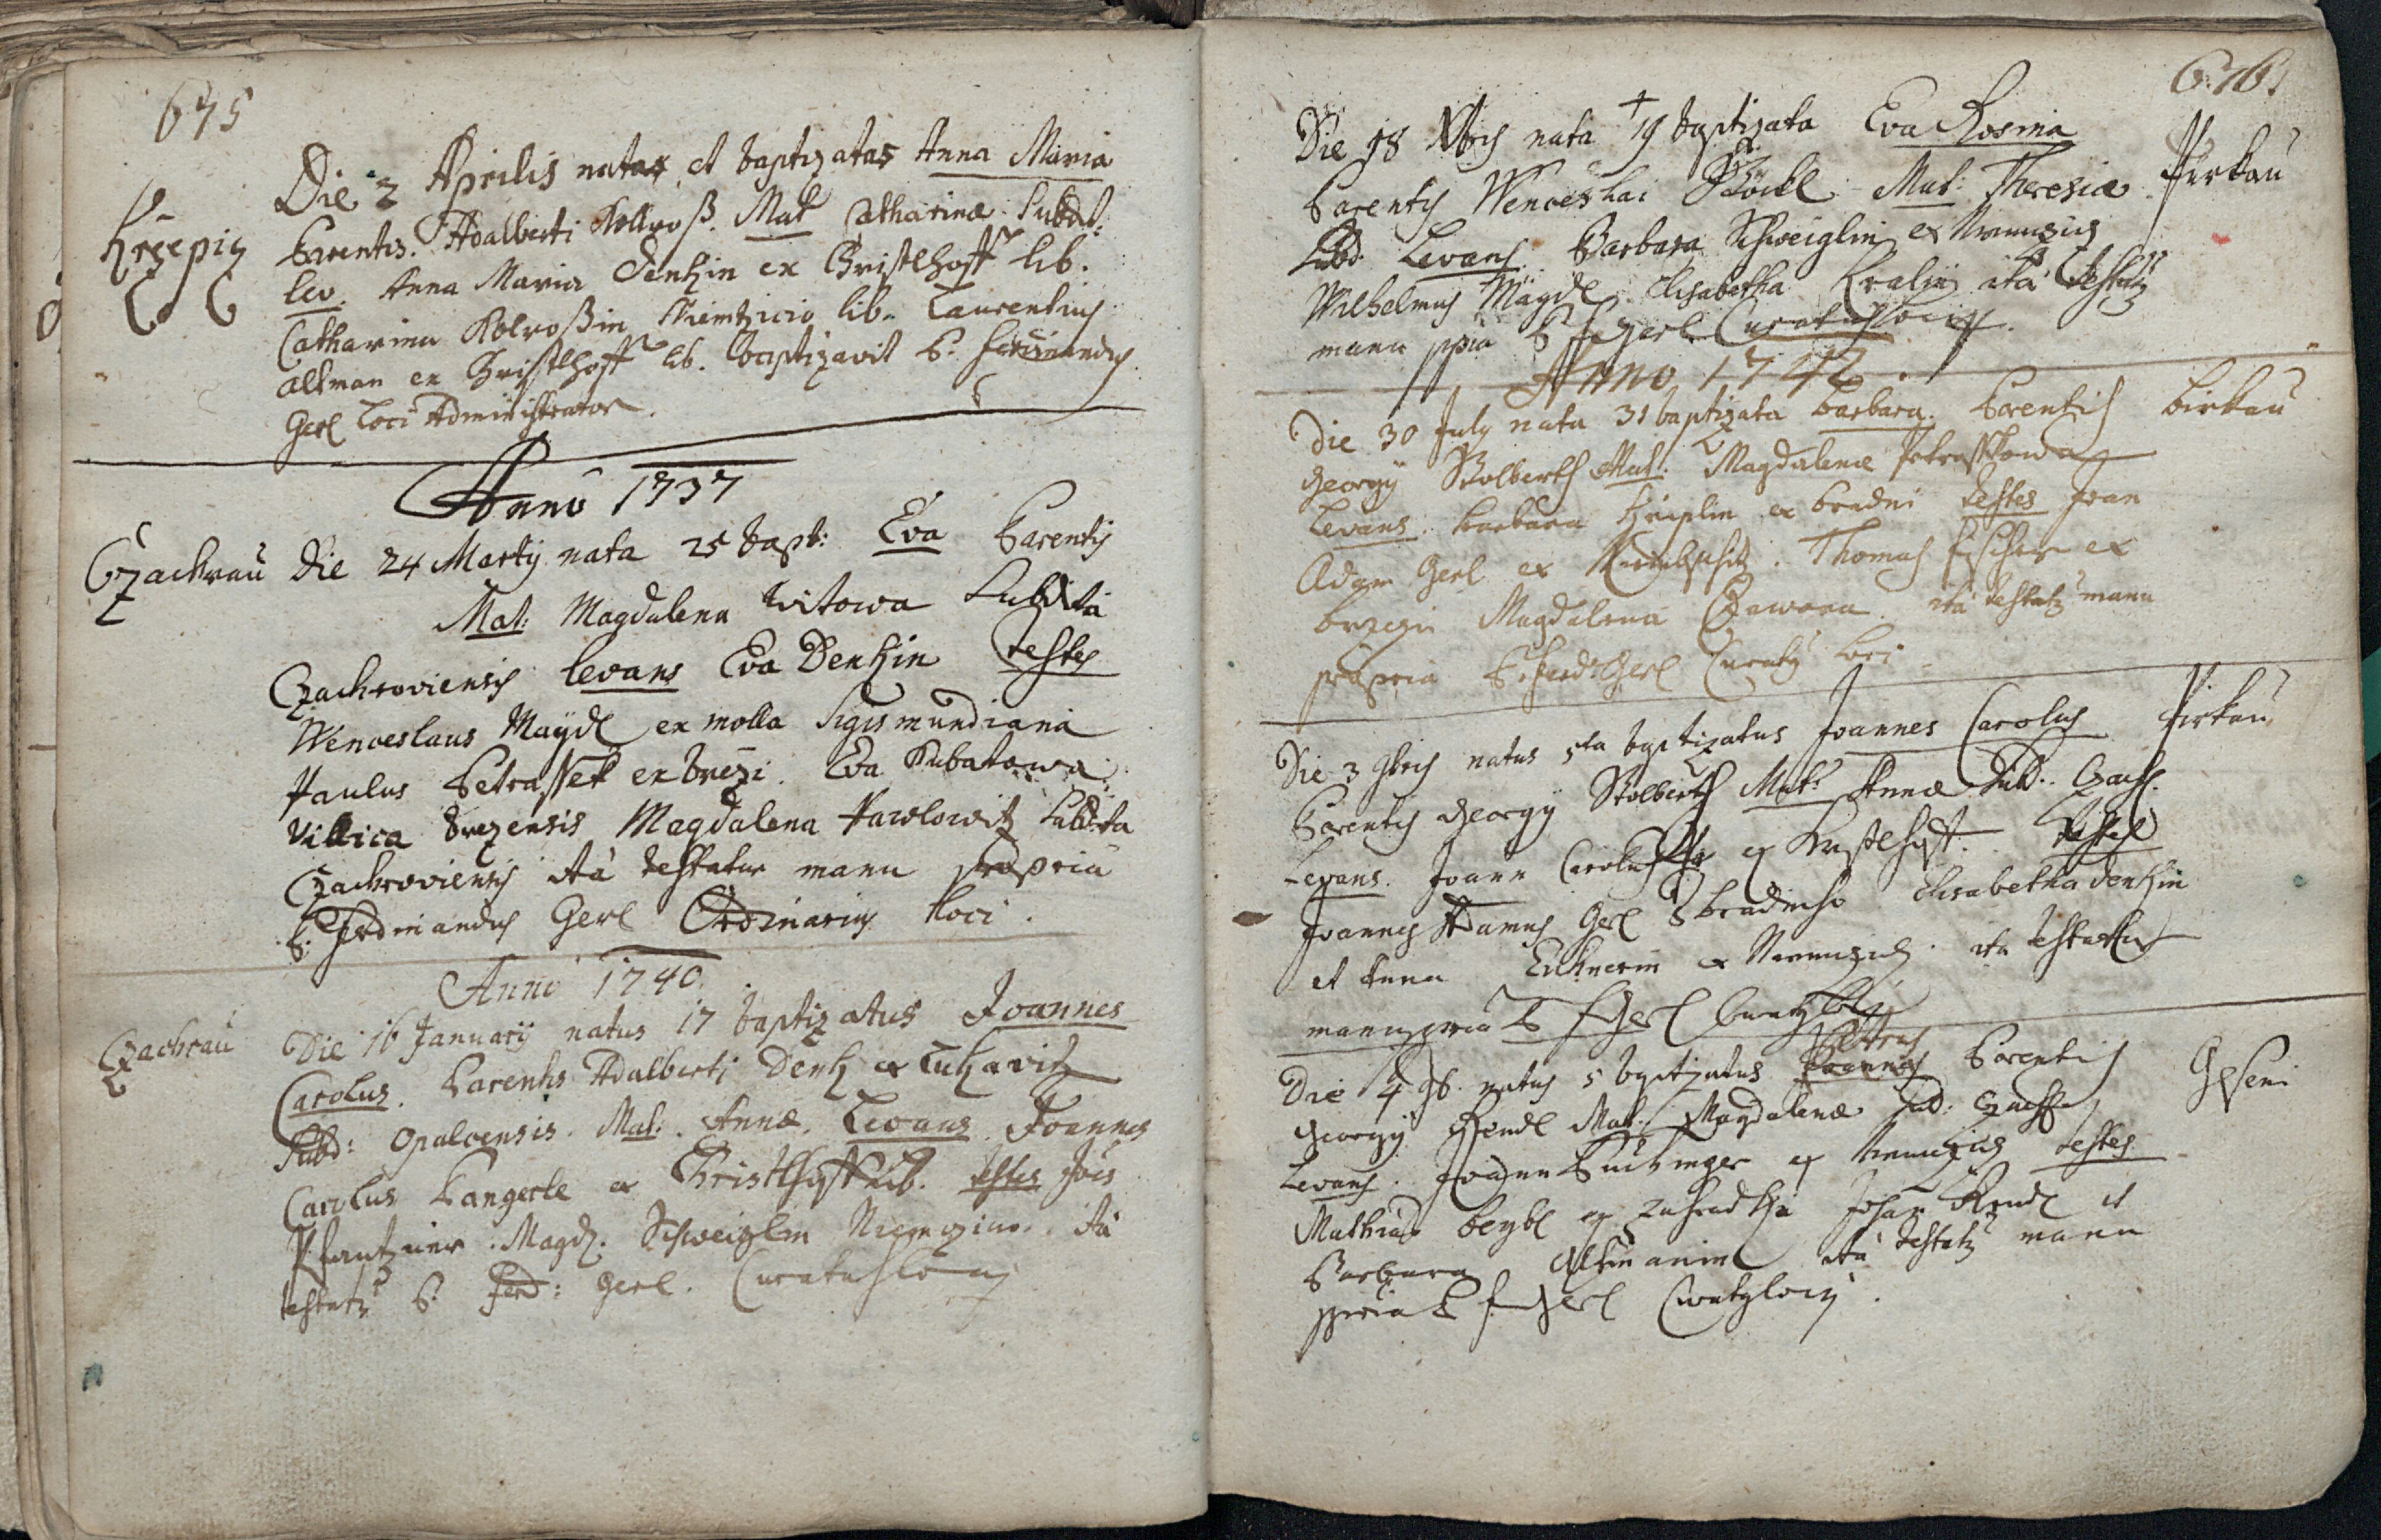 675
Krzepitz
Die 2 Aprilis nata et baptizatas Anna Maria
Parentis. Adalberti Kollroß. Mat Catharinæ Subdt:
lev. Anna Maria Denkin ex Christlhoff lib.
Catharina Kolroßin Niemtzicio lib. Laurentius
Altman ex Christlhoff lib. baptizavit P. Ferdinandus
Gerl loci Administrator.
Anno 1737
Czachrau Die 24 Martij nata 25 bapt: Eva Parentis
Mat: Magdalena Witowa Subdita
Czachroviensis levans Eva Denkin testes
Wenceslaus Maÿdl ex molla Sigismundiana
Paulus Petrassek ex brezi. Eva Kubatowa
Villica brezensis Magdalena Pawlowitz Subdita
Czachroviensis ita testatur manu propria
P. Ferdinandus Gerl Ordinarius loci.
Anno 1740.
Czachrau Die 16 Januarij natus 17 baptizatus Joannes
Carolus. Parentis Adalberti Denk ex Lukawitz
Subd: Opalcensis. Mat: Annæ. Levans Joannes
Carolus Langerle ex Christlhoff lib. testes Jois
Pfantzner. Magd. Schweiglin Niemzicio. ita
testatur P. Ferd: Gerl. Curatus loci
676
Die 18 Xbris nata + 19 baptizata Eva Rosina Pirkau
Parentis Wenceslai Böckl Mat: Theresiæ
Subd. Levans Barbara Schweiglin ex Niemzicz
Wilhelmus Maÿdl Elisabetha Kralin ita testatur
manu ppia P F Gerl Curatus loci
Anno 1742
Die 30 July nata 31 baptizata barbara. Parentis Birkau
Georgÿ Stolberth Mat: Magdalenæ Petrasskowa
Levans. barbara Kriplin ex bradni testes Joan
Adam Gerl ex. Thomas Fischer ex
brzezi Magdalena Czawona ita testatur manu
propria P. Ferd: Gerl Curatus loci
Die 3 9bris natus 5ta baptizatus Joannes Carolus Pirkau
Parentis Georgÿ Stolberth Mat: Annæ Sub. Czach.
Levans. Joann Carolus ex Kristlhoft. testes
Joannes Adamus Gerl Elisabetha Denkin
et Anna ex Niemzicz. ita testatur
manu ppria P F Gerl Curatus loci
Petrus
Die 4 9b. natus 5 baptizatus Joannes Parentis Geseni
Georgÿ Mat. Magdalenæ Sub: Czach
Levans. Joann ex Niemzicz testes
Mathias beybl ex Johan et
Barbara Altmanin ita testatur manu
ppria P F Gerl Curatus loci.